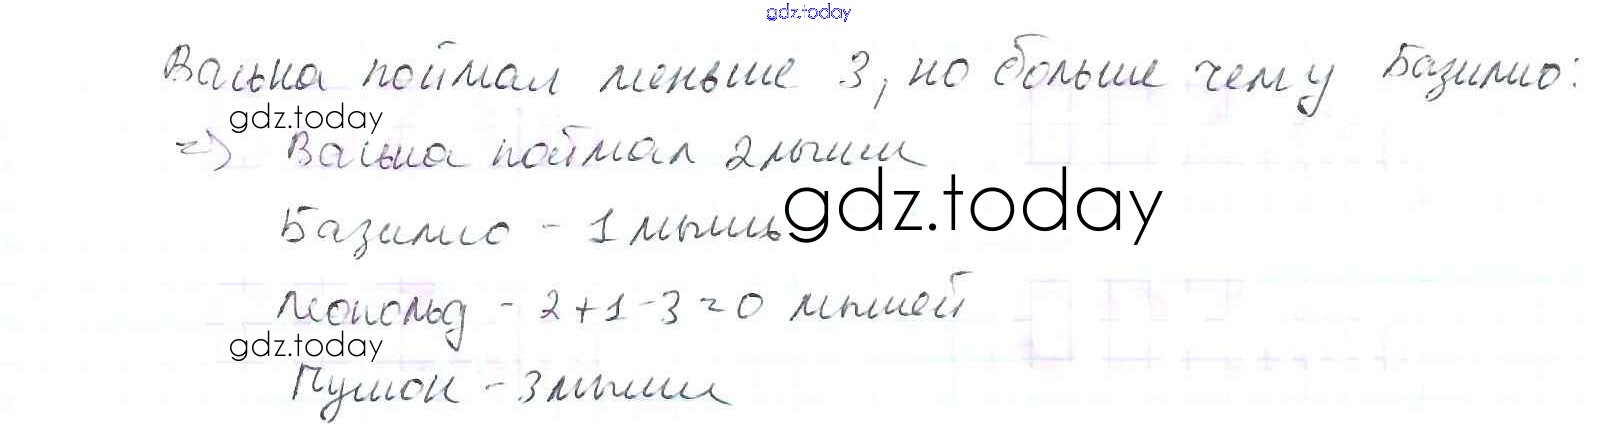 gdz.today
Васька поймал меньше 3, но больше чем у Базилио:
gdz.today
=> Васька поймал 2 мыши
gdz.today
Базилио - 1 мышь
Леопольд - 2+1-3=0 мышей
gdz.today
Пушок - 3 мыши